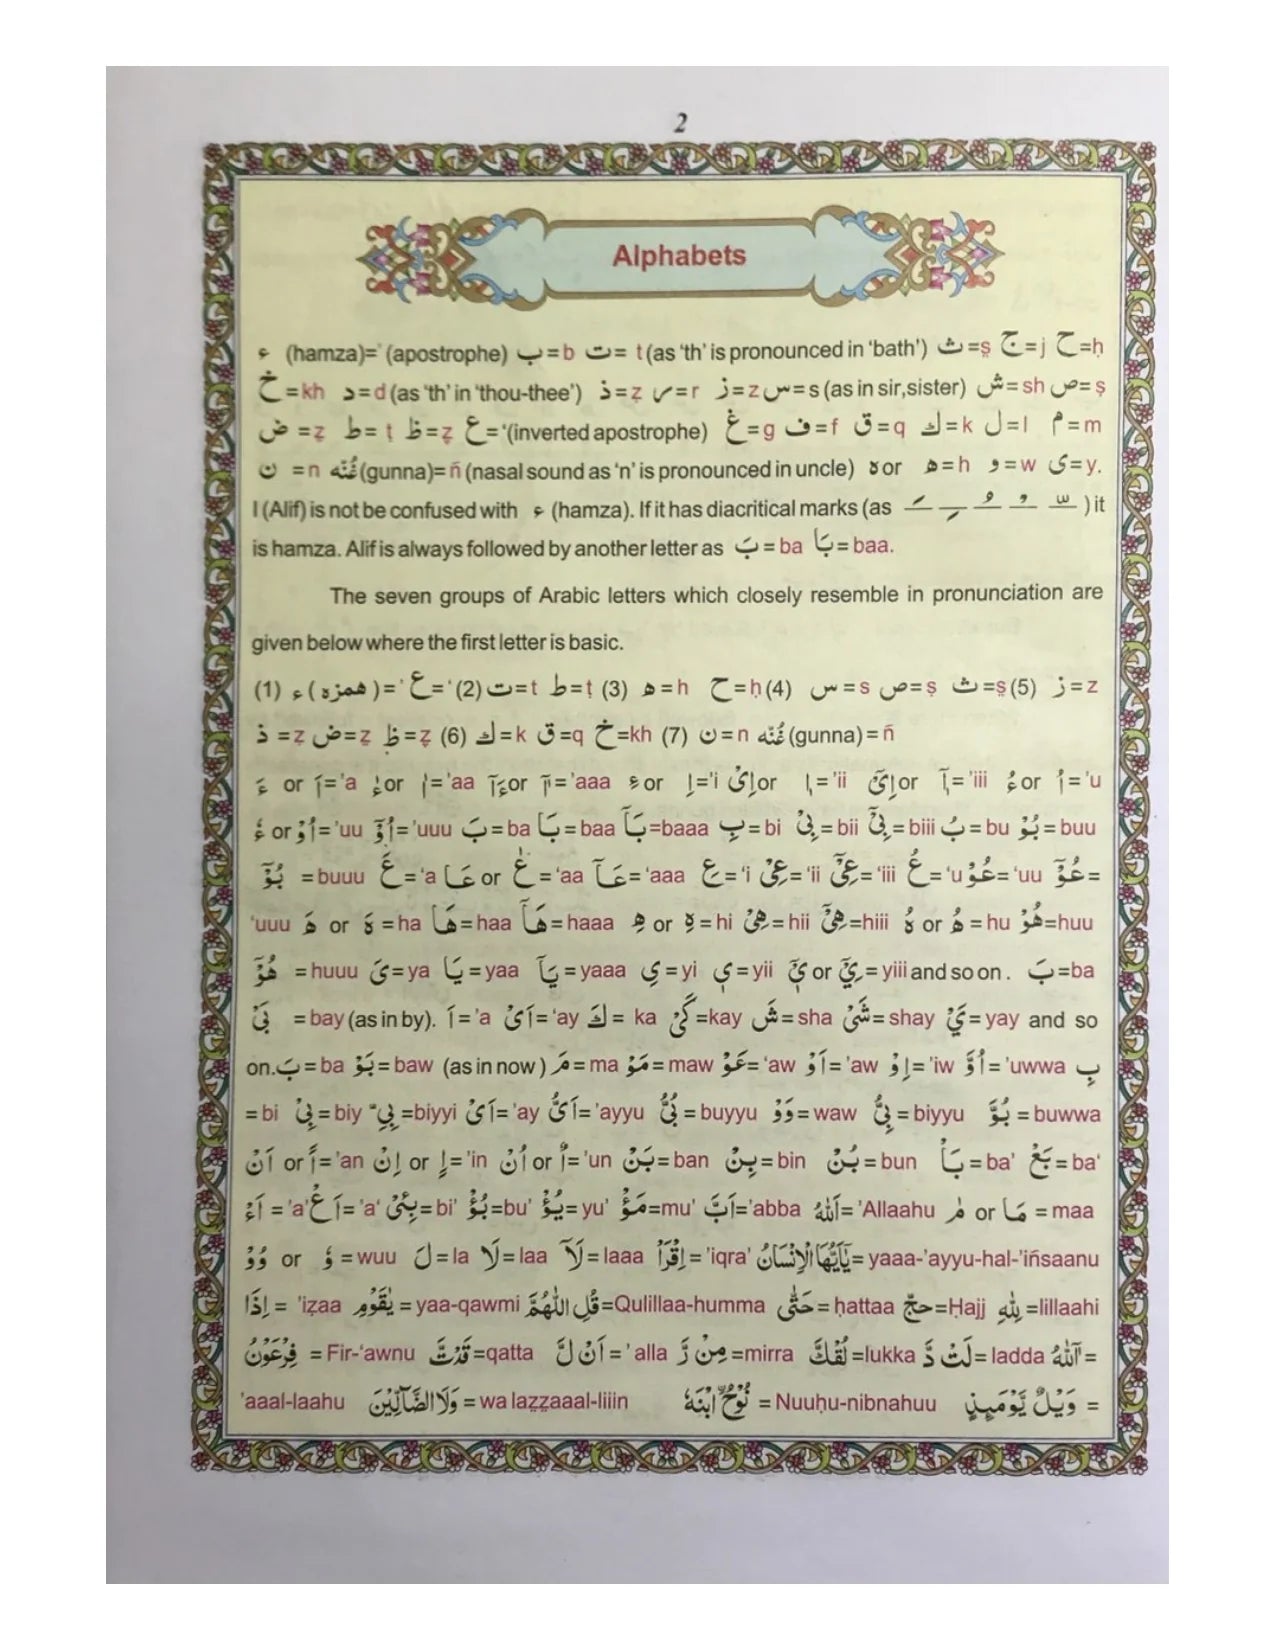 2
Alphabets
ء (hamza)=’ (apostrophe) ب=b ت= t (as ‘th’ is pronounced in ‘bath’) ث=s̤ ج=j ح=ḥ
خ=kh د=d (as ‘th’ in ‘thou-thee’) ذ=ẓ ر=r ز=z س=s (as in sir,sister) ش=sh ص=ṣ
ض=ẓ ط=ṭ ظ=ẓ ع=‘(inverted apostrophe) غ=g ف=f ق=q ك=k ل=l م=m
ن =n غُنّه (gunna)= ñ (nasal sound as ‘n’ is pronounced in uncle) ه or ھ=h و=w ی=y.
ا (Alif) is not be confused with ء (hamza). If it has diacritical marks (as ) it
is hamza. Alif is always followed by another letter as بَ=ba بَا=baa.
The seven groups of Arabic letters which closely resemble in pronunciation are
given below where the first letter is basic.
(1) ء (همزه)=’ ع=‘ (2) ت=t ط=ṭ (3) ھ=h ح=ḥ (4) س=s ص=ṣ ث=s̤ (5) ز=z
ذ=ẓ ض=ẓ ظ=ẓ (6) ك=k ق=q خ=kh (7) ن=n غُنّه (gunna)=ñ
ءَ or اَ=’a or =’aa or =’aaa or اِ=’i اِیْ or =’ii or =’iii ءُ or اُ=’u
or اُوْ=’uu اُوْٓ=’uuu بَ=ba بَا=baa بَآ=baaa بِ=bi بِیْ=bii بِیْٓ=biii بُ=bu بُوْ=buu
بُوْٓ =buuu عَ=‘a عَا or =‘aa عَآ=‘aaa عِ=‘i عِیْ=‘ii عِیْٓ=‘iii عُ=‘u عُوْ=‘uu عُوْٓ=
‘uuu ھَ or هَ =ha ھَا=haa ھَآ=haaa ھِ or هِ=hi ھِیْ=hii ھِیْٓ=hiii هُ or ھُ=hu ھُوْ=huu
ھُوْٓ =huuu یَ=ya یَا=yaa یَآ=yaaa یِ=yi =yii or =yiii and so on . بَ=ba
بَیْ =bay (as in by). اَ=’a اَیْ=‘ay كَ= ka كَیْ=kay شَ=sha شَیْ=shay یَیْ=yay and so
on. بَ=ba بَوْ=baw (as in now) مَ=ma مَوْ=maw عَوْ=‘aw اَوْ=’aw اِوْ=’iw اُوَّ=’uwwa بِ
=bi بِیْ=biy بِیِّ=biyyi اَیْ=’ay اَیُّ=’ayyu بُیُّ=buyyu وَوْ=waw بِیُّ=biyyu بُوَّ=buwwa
اَنْ or اً=’an اِنْ or اٍ=’in اُنْ or اٌ=’un بَنْ=ban بِنْ=bin بُنْ=bun بَأْ=ba’ بَعْ=ba‘
اَءْ =’a’ اَعْ=’a‘ بِئْ=bi’ بُؤْ=bu’ یُؤْ=yu’ مُؤْ=mu’ اَبَّ=’abba اَللهُ=’Allaahu مٰ or مَا=maa
وُوْ or =wuu لَ=la لَا=laa لَآ=laaa اِقْرَأْ=’iqra’ یٰٓاَیُّهَا الْاِنْسَانُ=yaaa-’ayyu-hal-’iñsaanu
اِذَا= ’iẓaa یٰقَوْمِ=yaa-qawmi قُلِ اللّٰهُمَّ=Qulillaa-humma حَتّٰی=ḥattaa حجّ=Ḥajj لِلّٰهِ=lillaahi
فِرْعَوْنُ =Fir-‘awnu قَدْتَّ=qatta اَنْ لَّ=’alla مِنْ رَّ=mirra لُقْكَّ=lukka لَتْ دَّ=ladda آٰللهُ=
’aaal-laahu وَلَا الضَّآلِّیْنَ=wa laẓẓaaal-liiin نُوْحُ ۨابْنَهٗ =Nuuḥu-nibnahuu وَیْلٌ یَّوْمَىِٕذٍ =